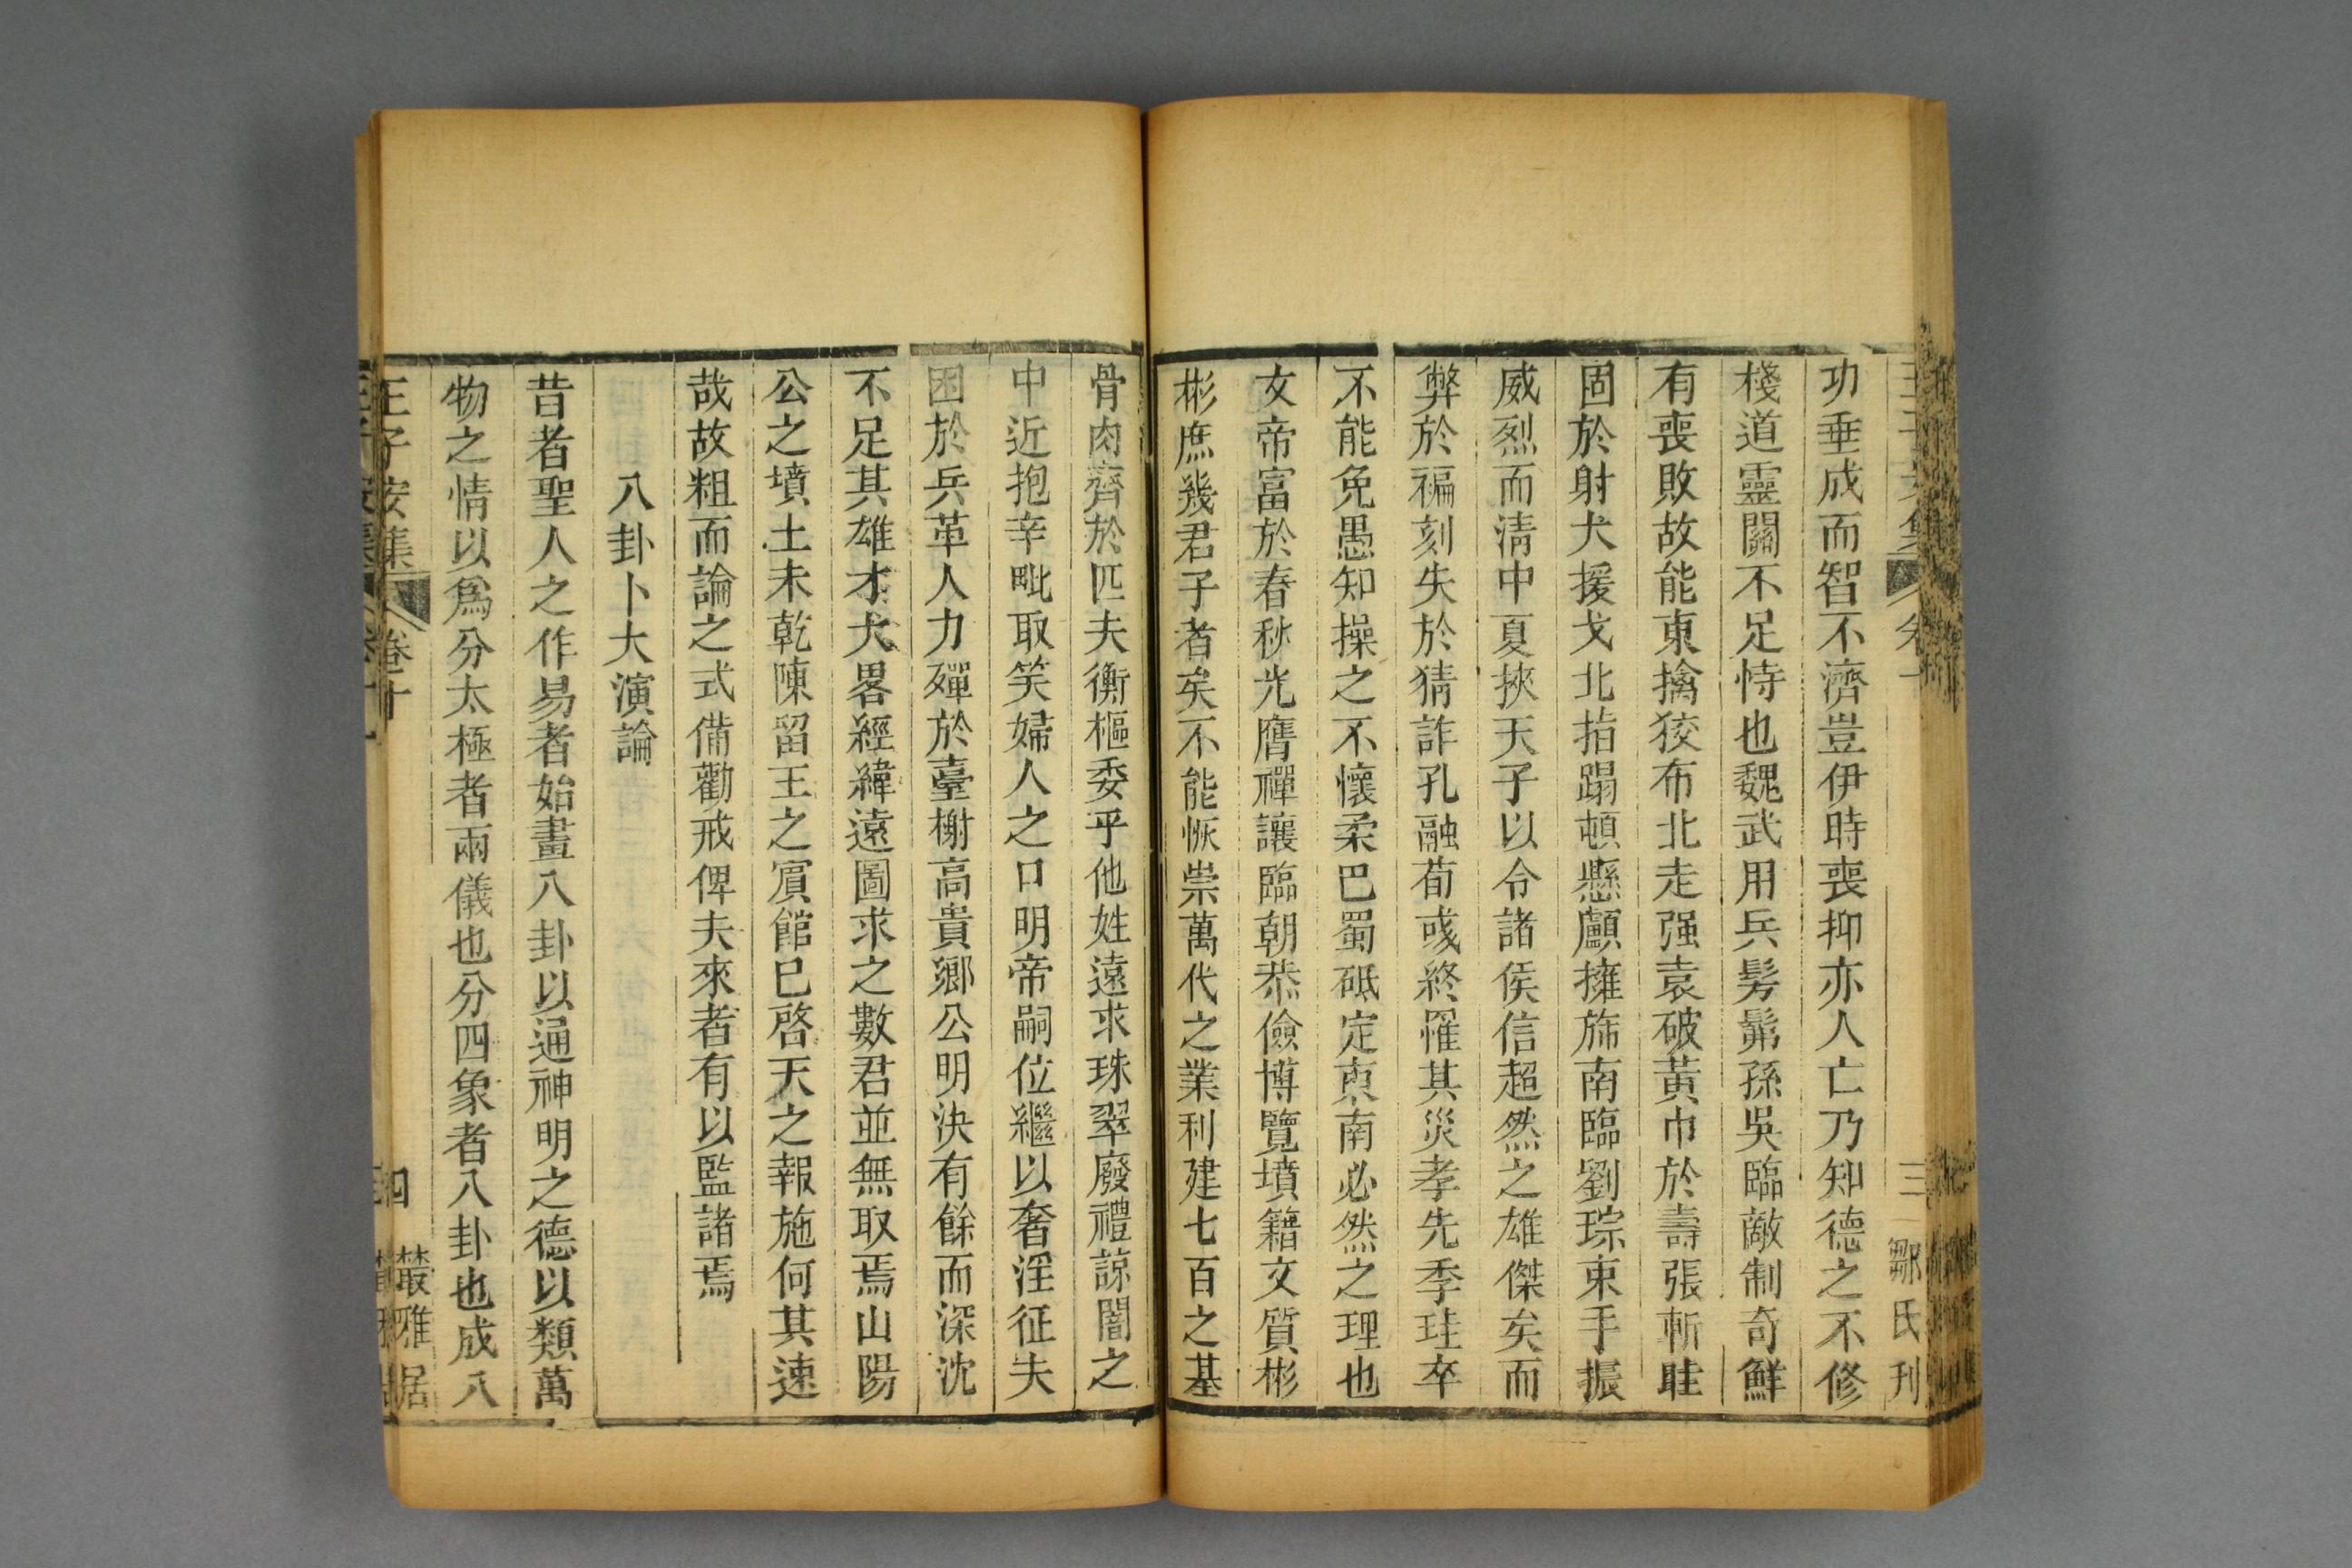 功垂成而智不濟豈伊時喪抑亦人亡乃知德之不修
棧道靈關不足恃也魏武用兵髣髴孫吳臨敵制奇鮮
有喪敗故能東擒狡布北走强袁破黃巾於壽張斬眭
固於射犬援戈北指蹋頓懸顱擁旆南臨劉琮束手振
威烈而清中夏挾天子以令諸侯信超然之雄傑矣而
弊於褊刻失於猜詐孔融荀彧終罹其災孝先季珪卒
不能免愚知操之不懷柔巴蜀砥定東南必然之理也
文帝富於春秋光膺禪讓臨朝恭儉博覽墳籍文質彬
彬庶幾君子者矣不能恢崇萬代之業利建七百之基
三 鄒氏刊
骨肉齊於匹夫衡樞委乎他姓遠求珠翠廢禮諒闇之
中近抱辛毗取笑婦人之口明帝嗣位繼以奢淫征夫
困於兵革人力殫於臺榭高貴鄉公明決有餘而深沈
不足其雄才大畧經緯遠圖求之數君並無取焉山陽
公之墳土未乾陳留王之賓館已啓天之報施何其速
哉故粗而論之式備勸戒俾夫來者有以監諸焉
八卦卜大演論
昔者聖人之作易者始畫八卦以通神明之德以類萬
物之情以爲分太極者兩儀也分四象者八卦也成八
王子安集 卷十 四 叢雅居